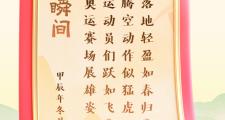 瞬间
甲辰年冬
奥运赛场展雄姿
运动员们跃如飞
腾空动作似猛虎
落地轻盈如春归